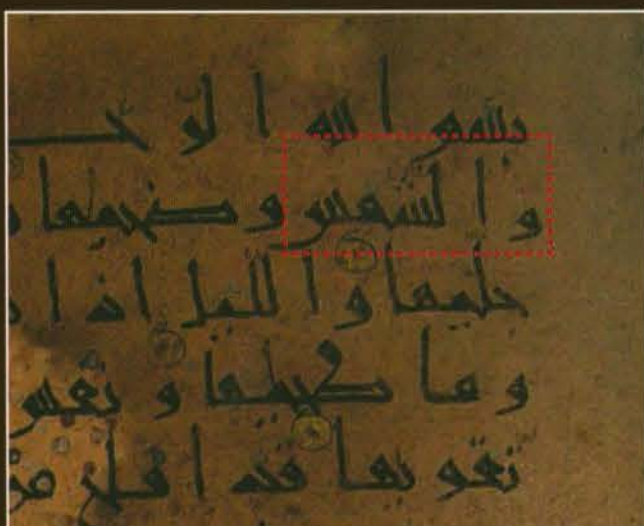 بسم الله الرحـ
والشمس وضحيها و
جليها والليل اذا
وما طحيها ونفس
تقويها قد افلح من